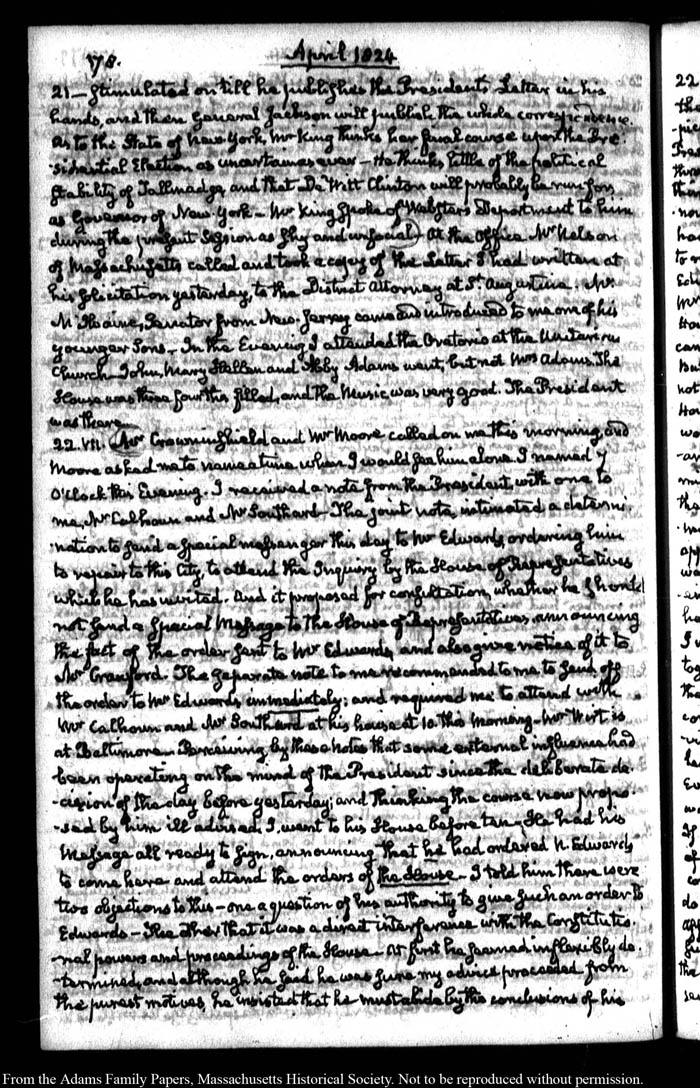 78.
April 1824
21— stimulated on till he publishes the Presidents Letter in his
hands, and then General Jackson will publish the whole correspondence.
As to the State of New York, Mr King thinks her final course upon the Pre-
-sidential Election as uncertain as ever— He thinks little of the political
stability of Tallmadge, and that De Witt Clinton will probably be run for
as Governor of New-York— Mr King spoke of Webster's Department to him
during the present Session as shy and unsocial— At the Office Mr Nelson
of Massachusetts called and took a copy of the Letter I had written at
his solicitation yesterday, to the District Attorney at St. Augustine. Mr
McIlvaine, Senator from New-Jersey came and introduced to me one of his
younger Sons— In the Evening I attended the Oratorio at the Unitarian
Church. John, Mary Hellen and Abby Adams went, but not Mrs Adams. The
House was three fourths filled, and the Music was very good. The President
was there.
22. VII. Mr Crowninshield and Mr Moore called on me this morning, and
Moore asked me to name a time when I would see him alone. I named 7
O'Clock this Evening. I received a note from the President, with one to
me, Mr Calhoun and Mr Southard— The joint note, intimated a determi-
-nation to send a special messenger this day to Mr Edwards, ordering him
to repair to this City, to attend the Inquiry by the House of Representatives
which he has invited. And it proposed for consultation, whether he should
not send a Special Message to the House of Representatives, announcing
the fact of the order sent to Mr Edwards, and also give notice of it to
Mr Crawford. The separate note to me recommended to me to send off
the order to Mr Edwards immediately; and required me to attend with
Mr Calhoun and Mr Southard at his house at 10 this morning— Mr Wirt is
at Baltimore— Perceiving by these notes that some external influence had
been operating on the mind of the President since the deliberate de-
-cision of the day before yesterday; and thinking the course now propo-
-sed by him ill advised, I went to his House before ten— He had his
Message all ready to sign, announcing that he had ordered N. Edwards
to come here and attend the orders of the House— I told him there were
two objections to this— one a question of his authority to give such an order to
Edwards— The other that it was a direct interference with the Constitutio-
-nal powers and proceedings of the House— At first he seemed inflexibly de-
-termined, and although he said he was sure my advice proceeded from
the purest motives, he insisted that he must abide by the conclusions of his
22
From the Adams Family Papers, Massachusetts Historical Society. Not to be reproduced without permission.